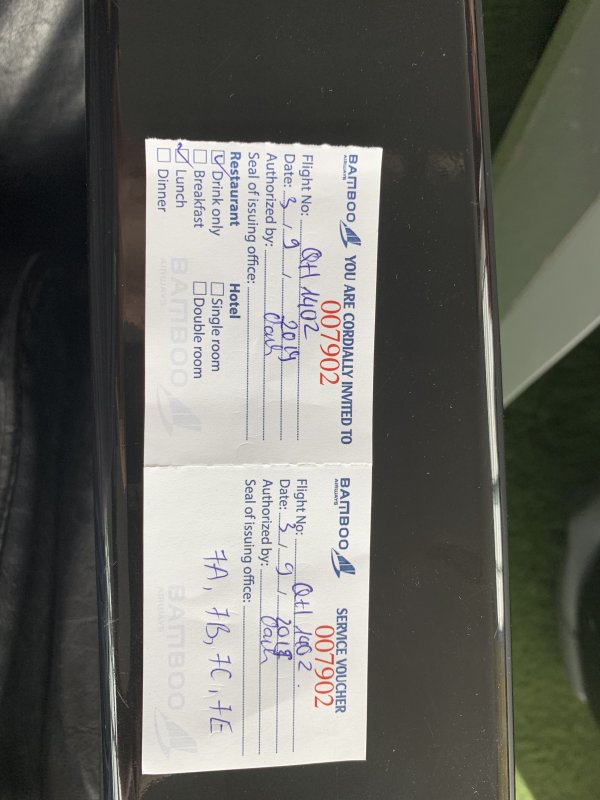 BAMBOO AIRWAYS YOU ARE CORDIALLY INVITED TO
007902
Flight No: QH 1402
Date: 3 / 9 / 2019
Authorized by:
Seal of issuing office:
Restaurant
☑ Drink only
☐ Breakfast
☑ Lunch
☐ Dinner
Hotel
☐ Single room
☐ Double room
BAMBOO AIRWAYS
BAMBOO AIRWAYS SERVICE VOUCHER
007902
Flight No: QH 1402.
Date: 3 / 9 / 2019
Authorized by:
Seal of issuing office:
7A, 7B, 7C, 7E
BAMBOO AIRWAYS